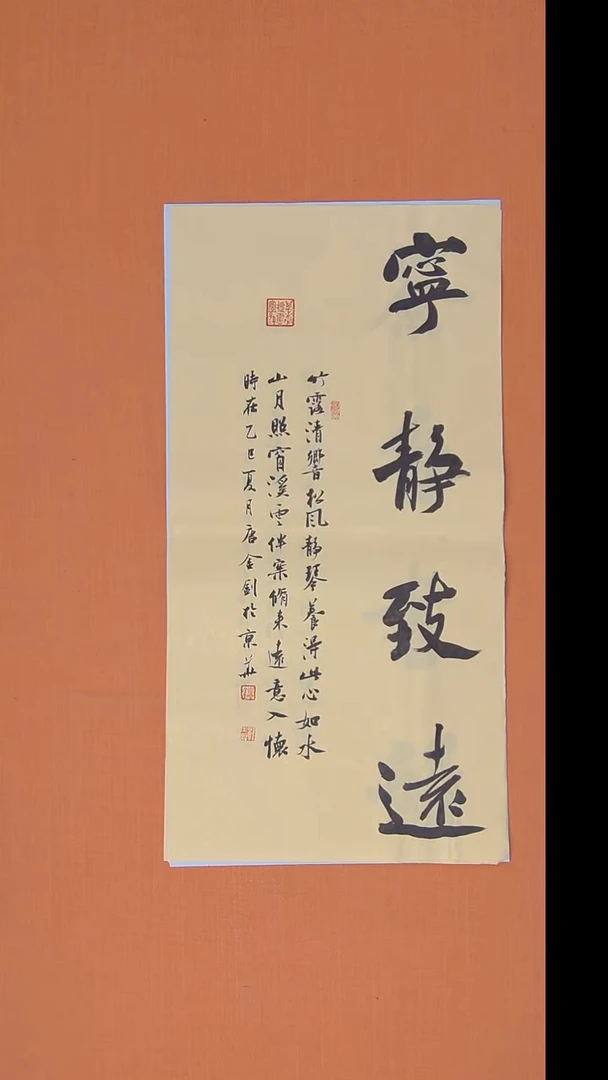 寧靜致遠
竹露清響松風靜琴養得此心如水
山月照窗溪雲伴案脩來遠意入懷
時在乙巳夏月唐金劍於京華